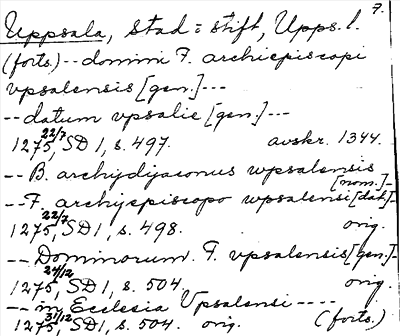 7.
Uppsala, stad = stift, Upps. l.
(forts.) -- domini F. archiepiscopi
vpsalensis [gen.] ---
-- datum vpsalie [gen.] ---
22/7
1275, SD 1, s. 497. avskr. 1344.
-- B. archydyaconus wpsalensis
[nom.] -
-- F. archyepiscopo wpsalensi [dat.] -
22/7
1275, SD 1, s. 498. orig.
-- Dominorum. F. vpsalensis [gen.] -
24/12
1275, SD 1, s. 504. orig.
-- in Ecclesia Vpsalensi ----
31/12
1275, SD 1, s. 504. orig. (forts.)